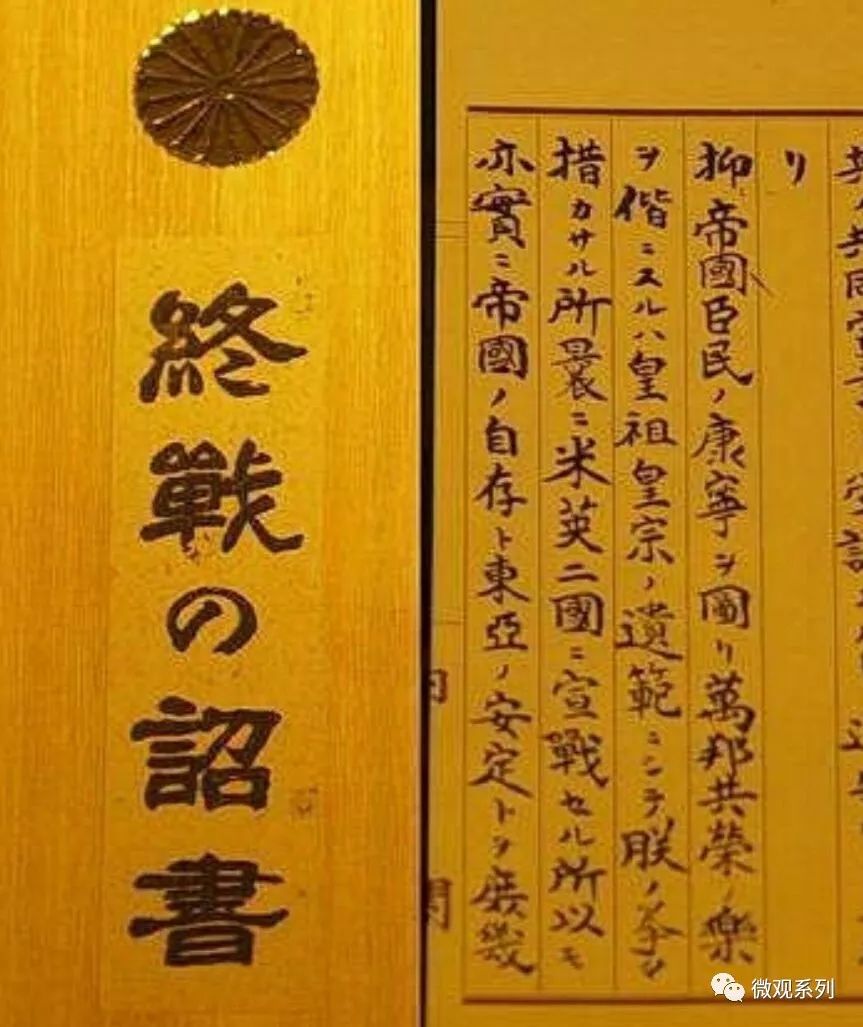 終戰の詔書
リ
抑帝國臣民ノ康寧ヲ圖リ萬邦共榮ノ樂
ヲ偕ニスルハ皇祖皇宗ノ遺範ニシテ朕ノ拳々
措カサル所曩ニ米英二國ニ宣戰セル所以モ
亦實ニ帝國ノ自存ト東亞ノ安定トヲ庶幾
微观系列